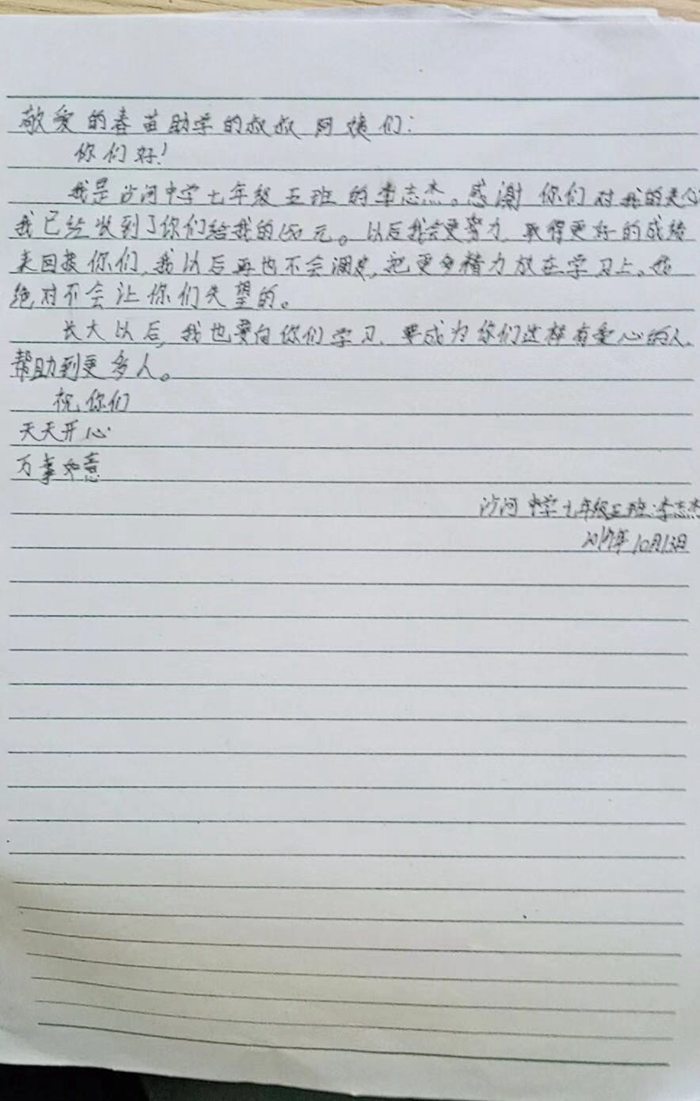 敬爱的春苗助学的叔叔阿姨们:
你们好!
我是沙河中学七年级五班的李志杰。感谢你们对我的关心
我已经收到了你们给我的150元。以后我会更努力,取得更好的成绩
来回报你们,我以后再也不会调皮,把更多精力放在学习上。我
绝对不会让你们失望的。
长大以后,我也要向你们学习,要成为你们这样有爱心的人,
帮助到更多人。
祝你们
天天开心
万事如意
沙河中学七年级五班:李志杰
10月13日